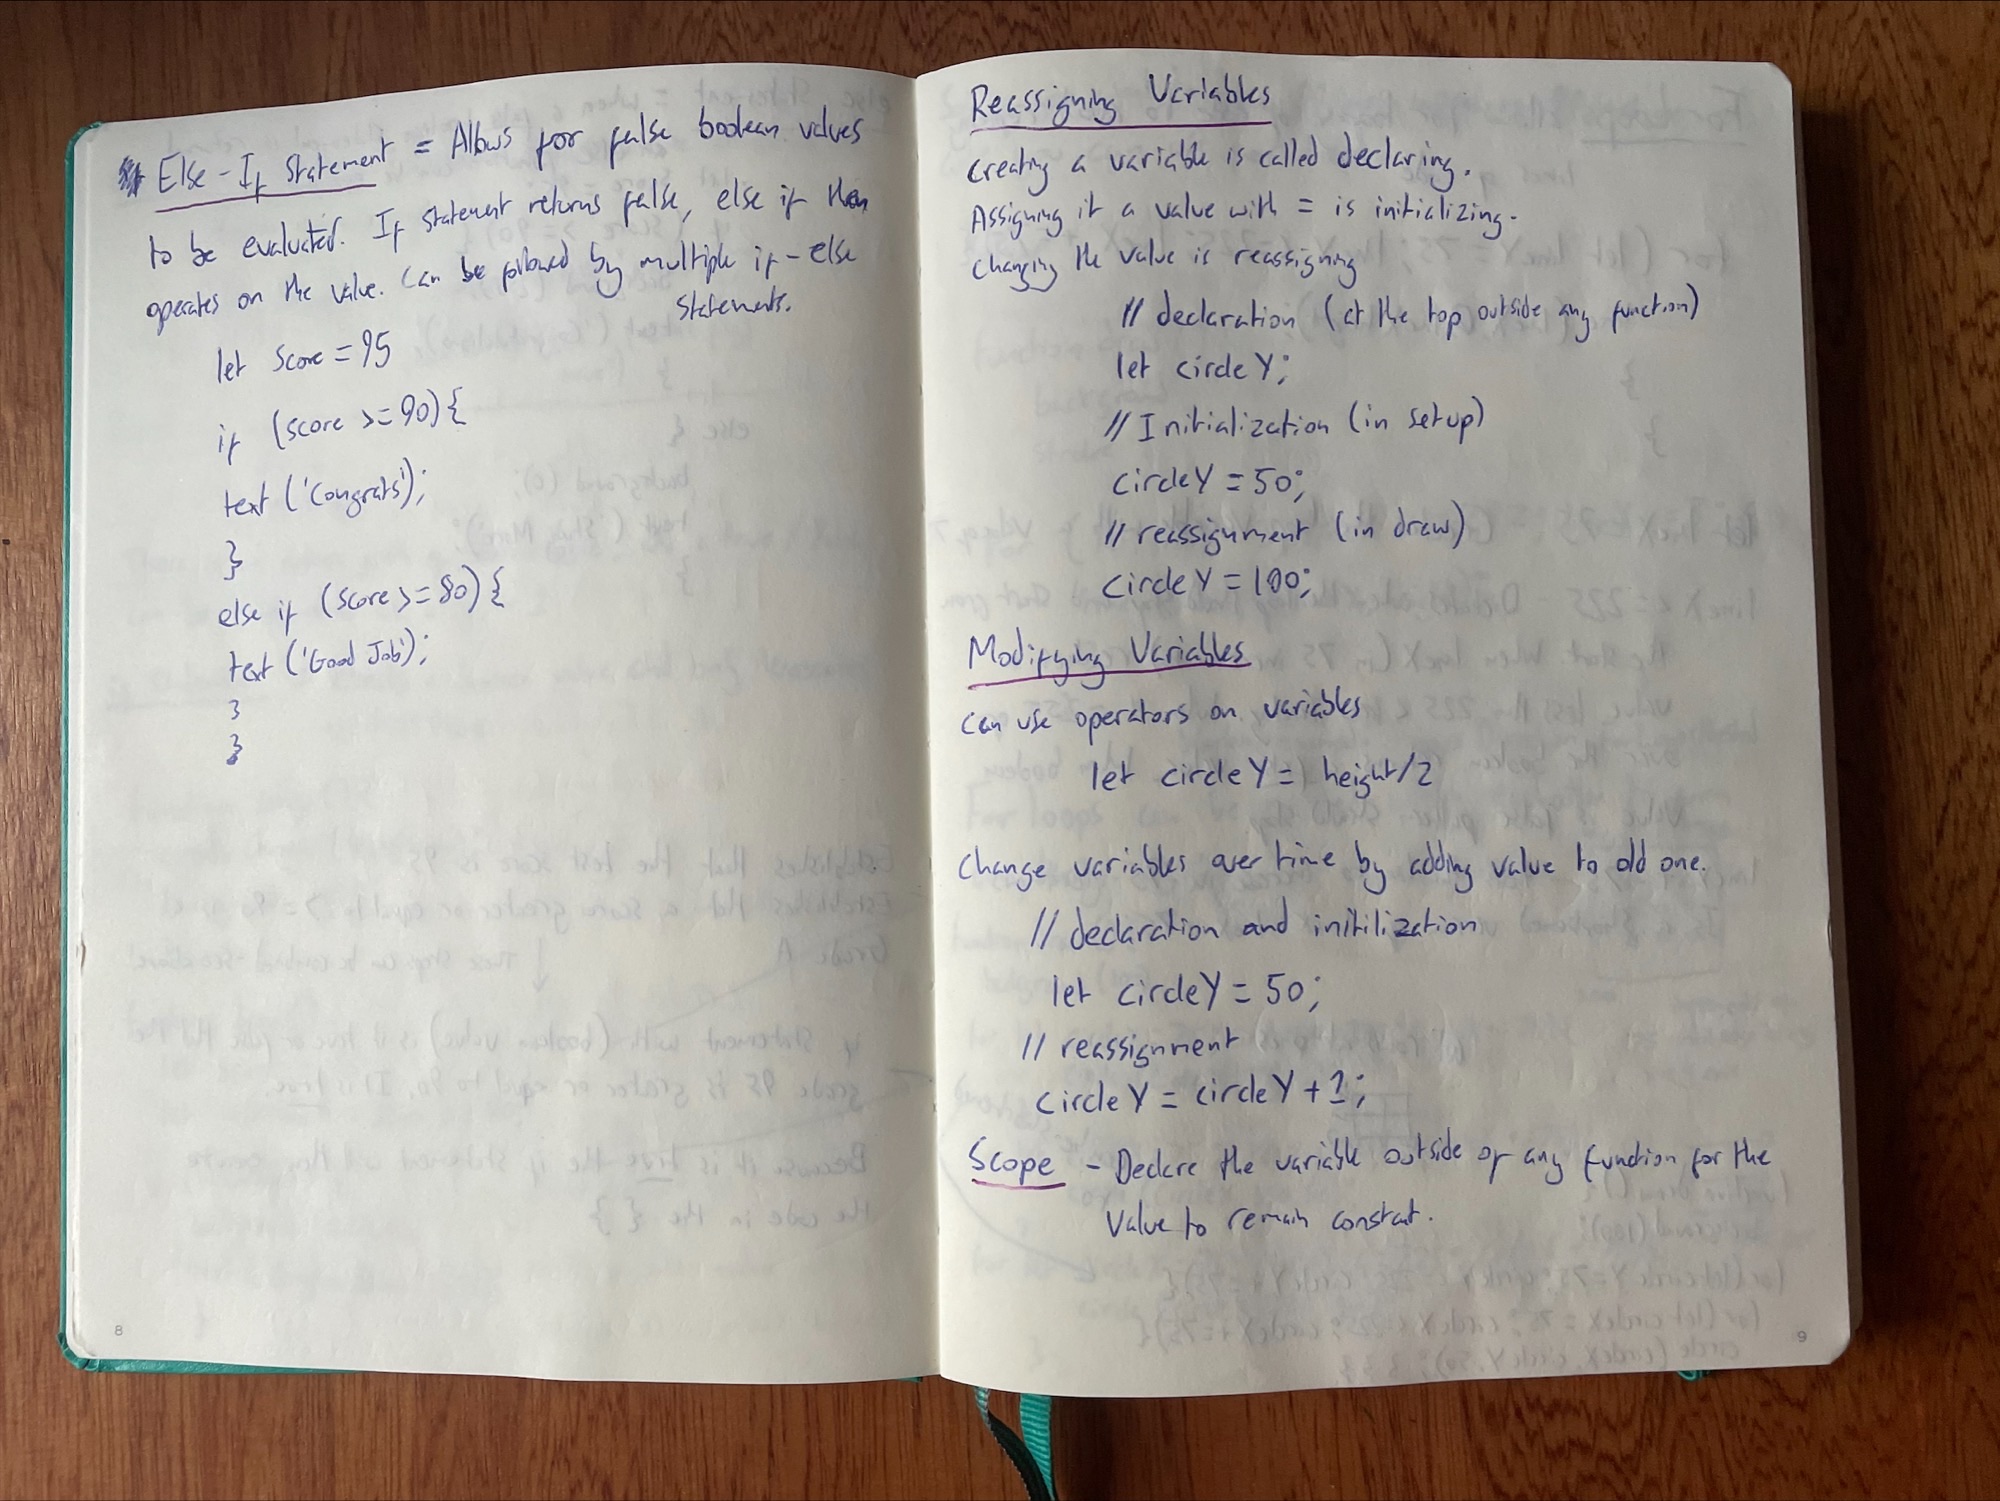 Else-If Statement = Allows for false boolean values
to be evaluated. If statement returns false, else if then
operates on the value. Can be followed by multiple if-else
statements.
let score = 95
if (score >= 90){
text ('Congrats');
}
else if (score >= 80){
text ('Good Job');
}
}
8
Reassigning Variables
Creating a variable is called declaring.
Assigning it a value with = is initializing.
Changing the value is reassigning
// declaration (at the top outside any function)
let circleY;
// Initialization (in setup)
circleY = 50;
// reassignment (in draw)
circleY = 100;
Modifying Variables
Can use operators on variables
let circleY = height/2
Change variables over time by adding value to old one.
// declaration and initilization
let circleY = 50;
// reassignment
circleY = circleY + 1;
Scope - Declare the variable outside of any function for the
value to remain constat.
9